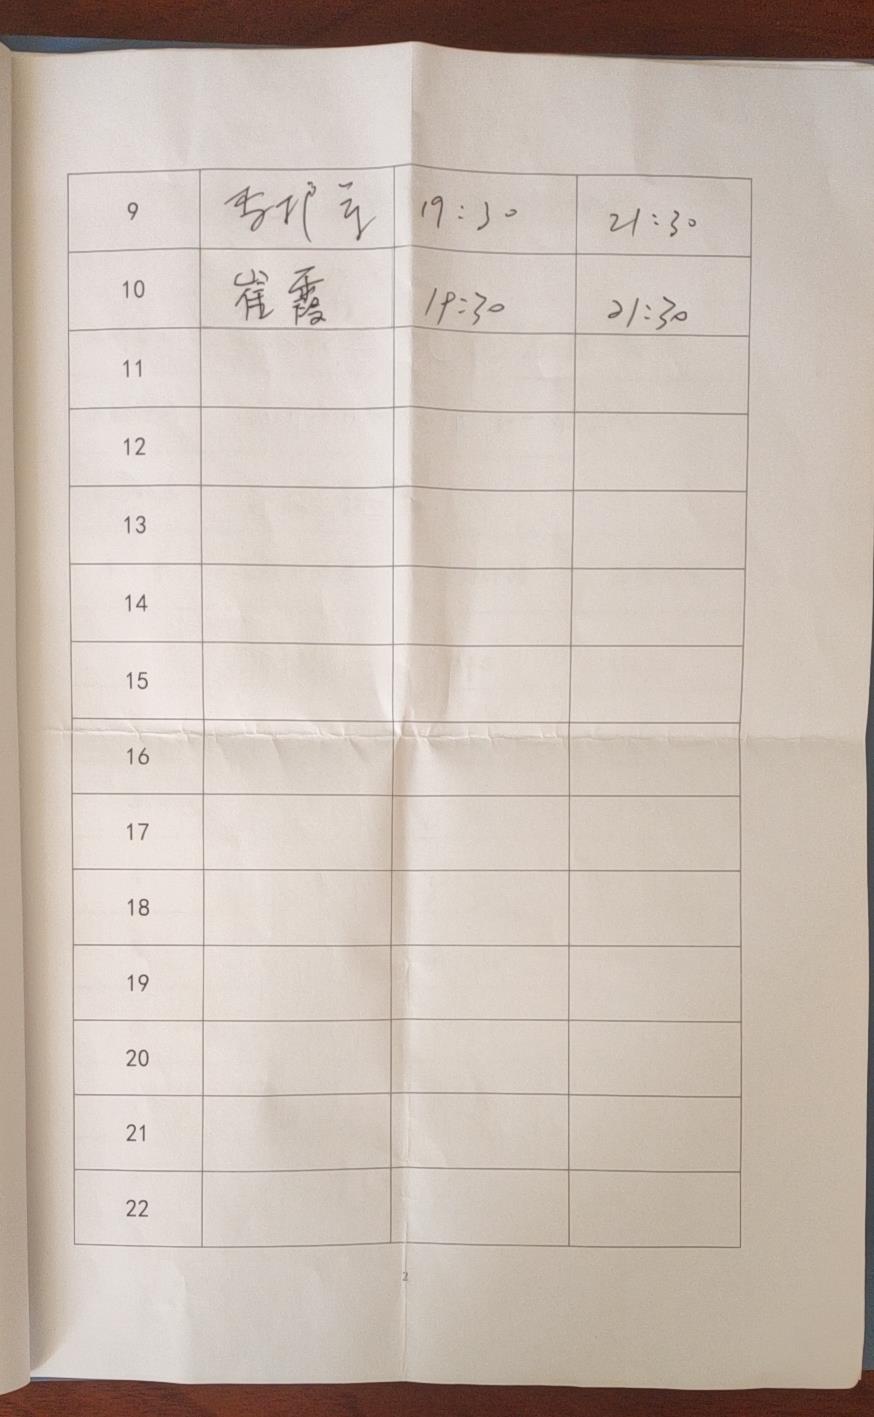 9 19:30 21:30
10 崔霞 19:30 21:30
11
12
13
14
15
16
17
18
19
20
21
22
2